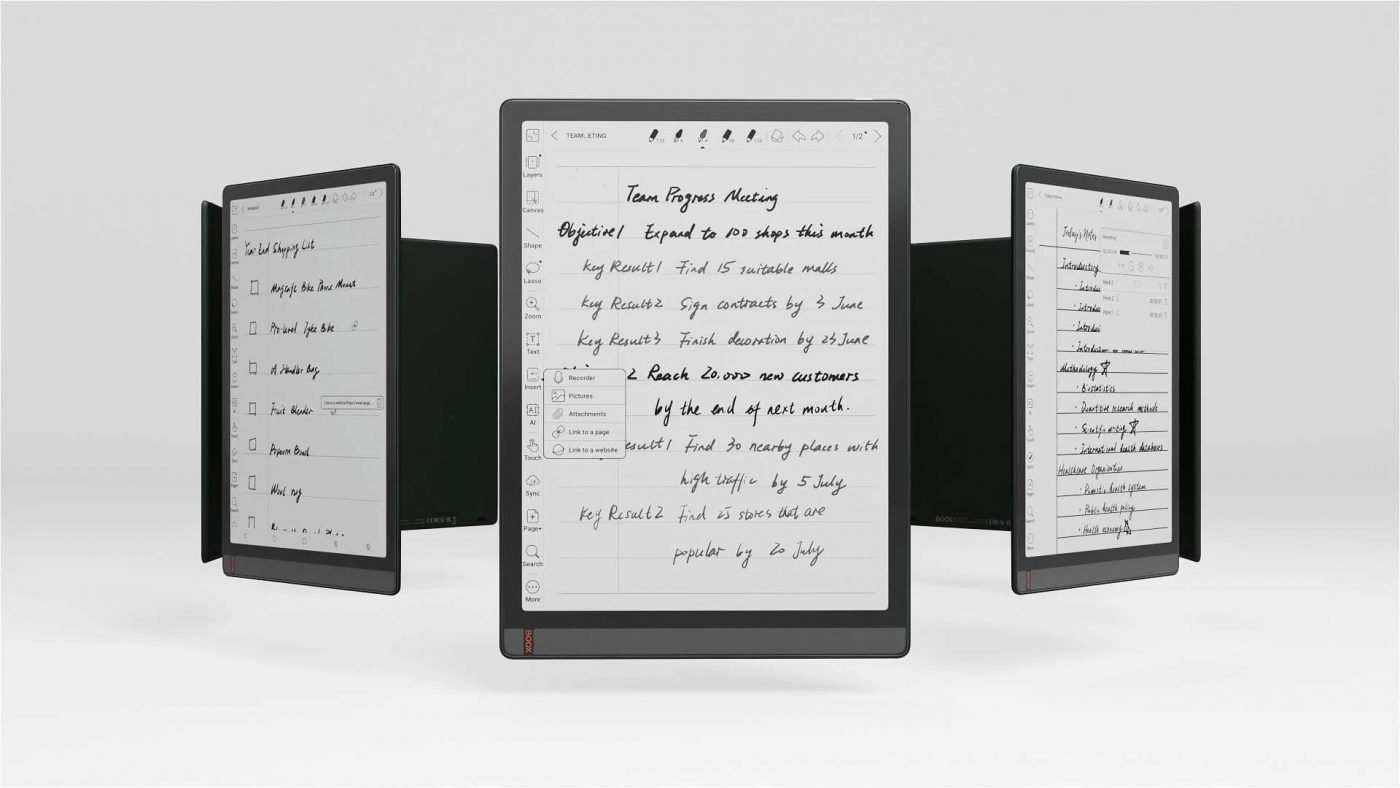 Your End Shopping List
Magsafe Bike Phone Mount
A Handler Bag
Fruit Blender
Popcorn Bowl
Wool rug
BOOX
TEAM...ETING
1/2
Layers
Canvas
Shape
Lasso
Zoom
Text
Insert
AI
Touch
Sync
Page+
Search
More
Team Progress Meeting
Objective1 Expand to 100 shops this month
Key Result1 Find 15 suitable malls
Key Result2 Sign contracts by 3 June
Key Result3 Finish decoration by 23 June
2 Reach 20.000 new customers
by the end of next month.
esult1 Find 30 nearby places with
high traffic by 5 July
Key Result2 Find 25 stores that are
popular by 20 July
Recorder
Pictures
Attachments
Link to a page
Link to a website
BOOX
Today's Notes
Introducting
Introduc
Introduc
Introduc
Methodology
Biostatistics
Quantitive research methods
Scientific writing
International health databases
Healthcare Organization
Domestic health system
Public health policy
Health economy
BOOX
BOOX